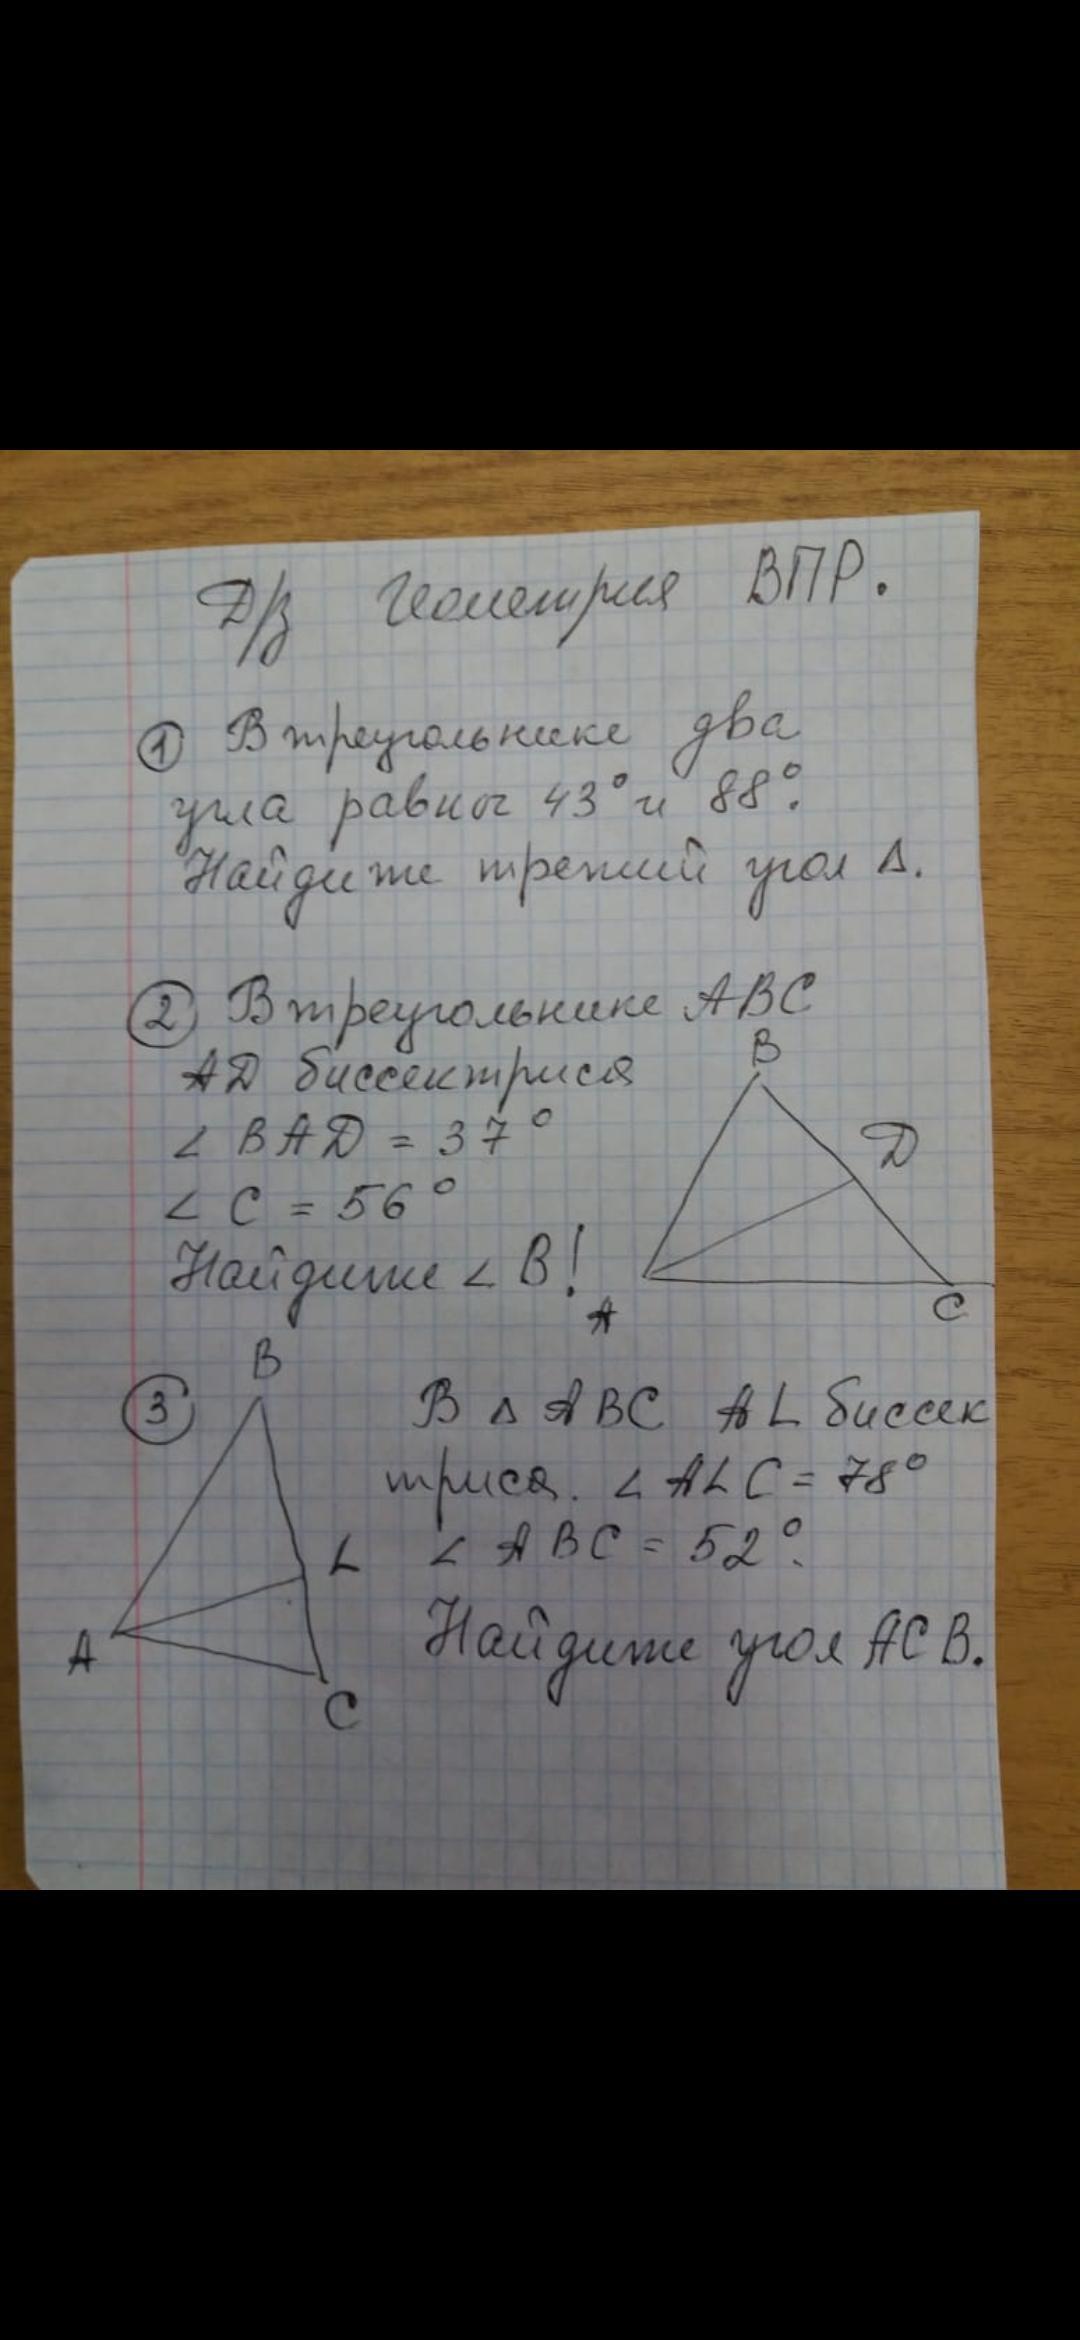 Д/З Геометрия ВПР.
① В треугольнике два
угла равны 43° и 88°.
Найдите третий угол Δ.
② В треугольнике ABC
AD биссектриса
∠ BAD = 37°
∠ C = 56°
Найдите ∠ B!
B
D
A
C
③ В Δ ABC AL биссек
триса. ∠ ALC = 78°
∠ ABC = 52°.
Найдите угол ACB.
B
L
A
C